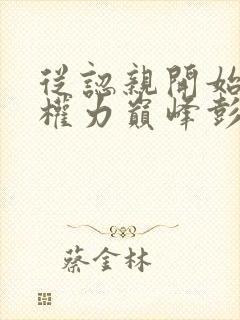 從認親開始
權力巔峰彭
蔡金林